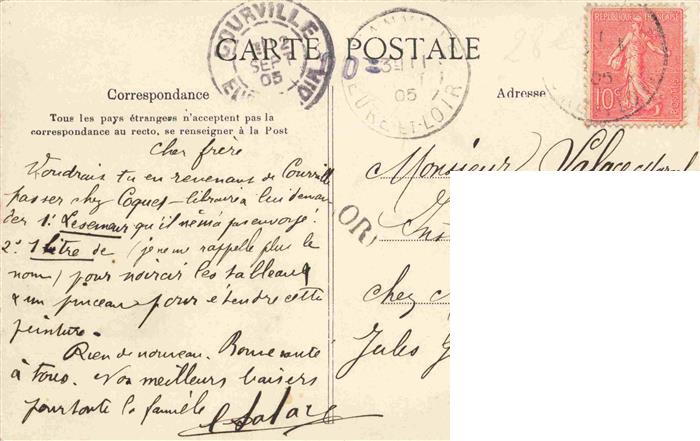 CARTE POSTALE
COURVILLE
2
SEPT
05
EURE-ET-LOIR
05
10c
Correspondance
Adresse
Tous les pays étrangers n'acceptent pas la
correspondance au recto, se renseigner à la Post
Cher frère
Voudrais tu en revenant de Courville
passer chez Coquet-libraire à lui deman
der 1° Le semeur qu'il ne m'a pas envoyé.
2° 1 litre de (je ne me rappelle plus le
nom) pour noircir les tableaux
& un pinceau pour étendre cette
peinture.
Rien de nouveau. Bonne santé
à tous. Nos meilleurs baisers
pour toute la famille
OR
Monsieur
chez
Jules G